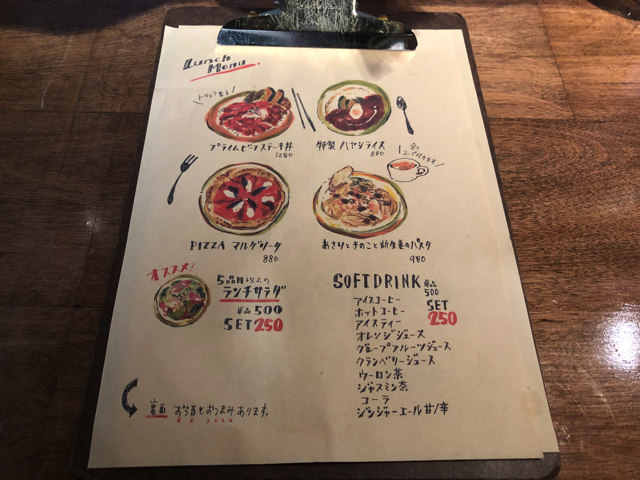 Lunch
Menu.
プライムビーフステーキ丼
1280
特製 ハヤシライス
880
PIZZA マルゲリータ
880
あさりときのこと新生姜のパスタ
980
オススメ!
5品目以上の
ランチサラダ
単品 500
SET 250
SOFT DRINK 単品
500
SET
250
アイスコーヒー
ホットコーヒー
アイスティー
オレンジジュース
グレープフルーツジュース
クランベリージュース
ウーロン茶
ジャスミン茶
コーラ
ジンジャーエール 甘/辛
裏面 お酒とおつまみあります。